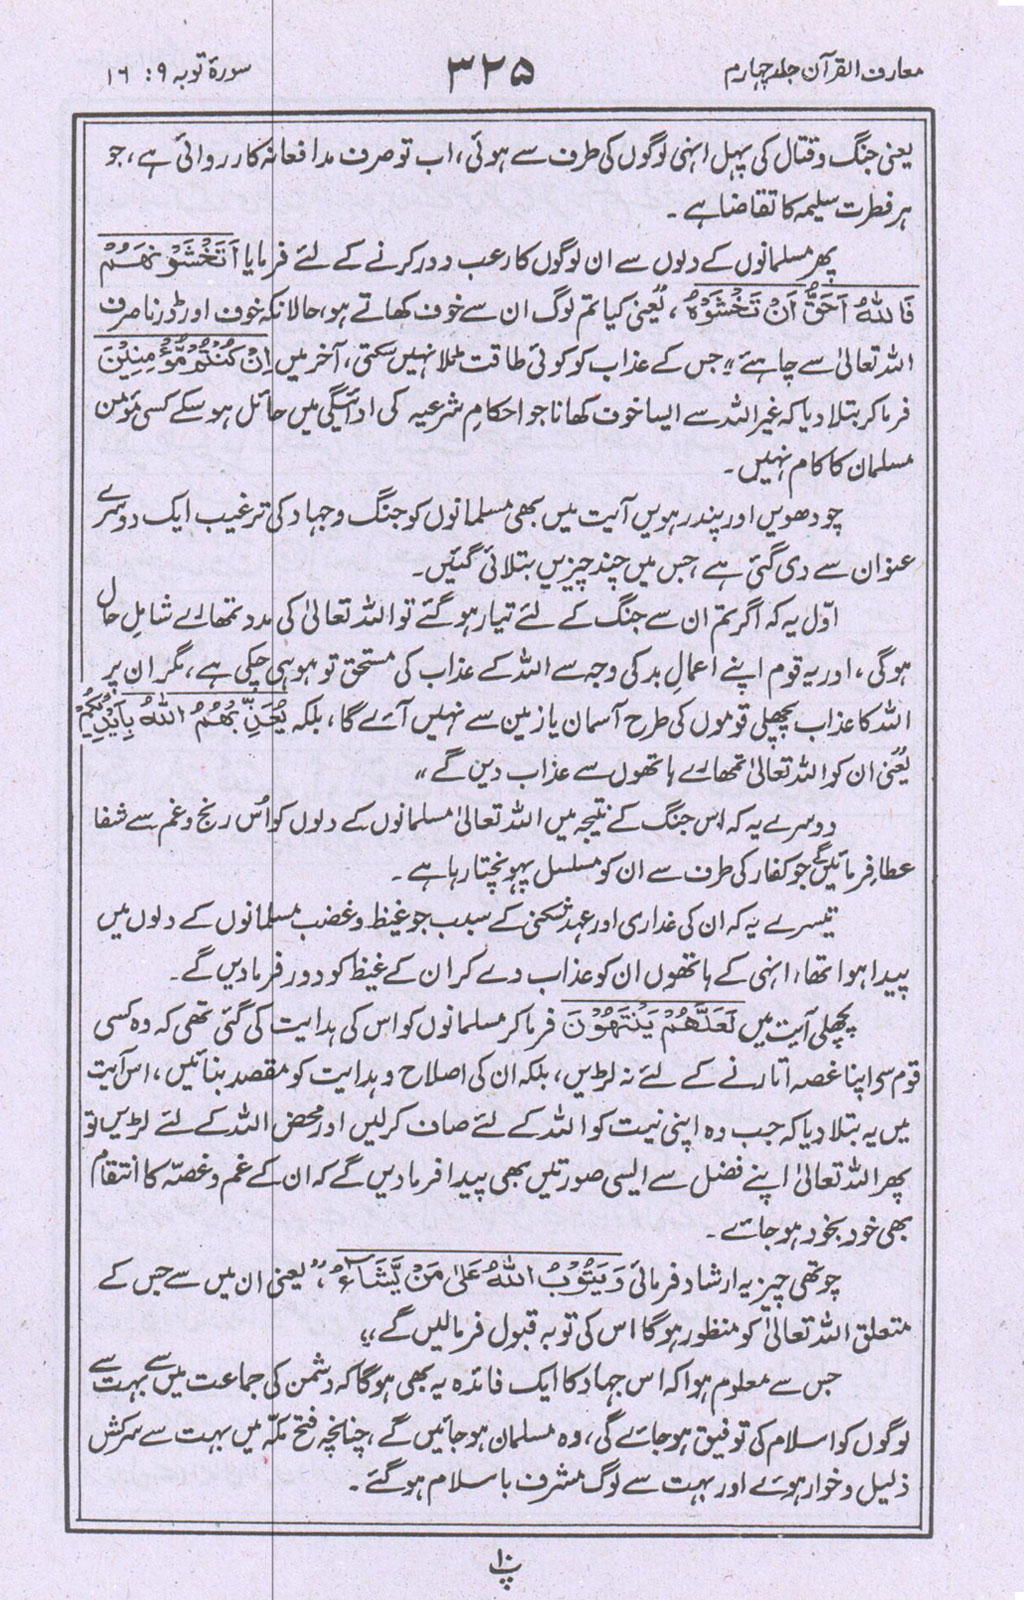 معارف القرآن جلد چہارم
۳۲۵
سورۃ توبہ ۹: ۱۶
یعنی جنگ و قتال کی پہل انہی لوگوں کی طرف سے ہوئی، اب تو صرف مدافعانہ کارروائی ہے، جو
ہر فطرت سلیمہ کا تقاضا ہے۔
پھر مسلمانوں کے دلوں سے ان لوگوں کا رعب دور کرنے کے لئے فرمایا اَتَخْشَوْنَھُمْ
فَاللّٰہُ اَحَقُّ اَنْ تَخْشَوْہُ، یعنی کیا تم لوگ ان سے خوف کھاتے ہو، حالانکہ خوف اور ڈرنا صرف
اللہ تعالیٰ سے چاہئے“ جس کے عذاب کو کوئی طاقت ٹلا نہیں سکتی، آخر میں اِنْ کُنْتُمْ مُّؤْمِنِیْنَ
فرما کر بتلا دیا کہ غیر اللہ سے ایسا خوف کھانا جو احکامِ شرعیہ کی ادائیگی میں حائل ہو سکے کسی مؤمن
مسلمان کا کام نہیں۔
چودھویں اور پندرہویں آیت میں بھی مسلمانوں کو جنگ و جہاد کی ترغیب ایک دوسرے
عنوان سے دی گئی ہے، جس میں چند چیزیں بتلائی گئیں۔
اوّل یہ کہ اگر تم ان سے جنگ کے لئے تیار ہو گئے تو اللہ تعالیٰ کی مدد تمھارے شاملِ حال
ہو گی، اور یہ قوم اپنے اعمالِ بد کی وجہ سے اللہ کے عذاب کی مستحق تو ہو ہی چکی ہے، مگر ان پر
اللہ کا عذاب پچھلی قوموں کی طرح آسمان یا زمین سے نہیں آئے گا، بلکہ یُعَذِّبْھُمُ اللّٰہُ بِاَیْدِیْکُمْ
یعنی ان کو اللہ تعالیٰ تمھارے ہاتھوں سے عذاب دیں گے“
دوسرے یہ کہ اس جنگ کے نتیجہ میں اللہ تعالیٰ مسلمانوں کے دلوں کو اُس رنج و غم سے شفا
عطا فرمائیں گے جو کفار کی طرف سے ان کو مسلسل پہونچتا رہا ہے۔
تیسرے یہ کہ ان کی غداری اور عہد شکنی کے سبب جو غیظ و غضب مسلمانوں کے دلوں میں
پیدا ہوا تھا، انہی کے ہاتھوں ان کو عذاب دے کر ان کے غیظ کو دور فرما دیں گے۔
پچھلی آیت میں لَعَلَّھُمْ یَنْتَھُوْنَ فرما کر مسلمانوں کو اس کی ہدایت کی گئی تھی کہ وہ کسی
قوم سے اپنا غصہ اتارنے کے لئے نہ لڑیں، بلکہ ان کی اصلاح و ہدایت کو مقصد بنائیں، اس آیت
میں یہ بتلا دیا کہ جب وہ اپنی نیت کو اللہ کے لئے صاف کر لیں اور محض اللہ کے لئے لڑیں تو
پھر اللہ تعالیٰ اپنے فضل سے ایسی صورتیں بھی پیدا فرما دیں گے کہ ان کے غم و غصّہ کا انتقام
بھی خود بخود ہو جائے۔
چوتھی چیز یہ ارشاد فرمائی وَیَتُوْبُ اللّٰہُ عَلٰی مَنْ یَّشَآءُ، ”یعنی ان میں سے جس کے
متعلق اللہ تعالیٰ کو منظور ہو گا اس کی توبہ قبول فرما لیں گے“
جس سے معلوم ہوا کہ اس جہاد کا ایک فائدہ یہ بھی ہو گا کہ دشمن کی جماعت میں سے بہت سے
لوگوں کو اسلام کی توفیق ہو جائے گی، وہ مسلمان ہو جائیں گے، چنانچہ فتح مکّہ میں بہت سے سرکش
ذلیل و خوار ہوئے اور بہت سے لوگ مشرف باسلام ہو گئے۔